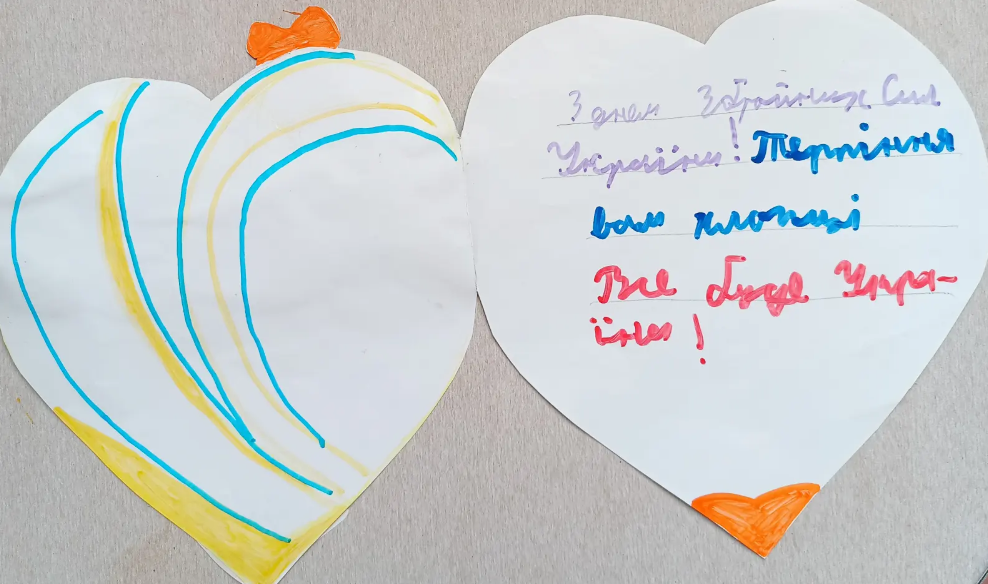 З днем Збройних Сил
України! Терпіння
вам хлопці
Все буде Укра-
їна!